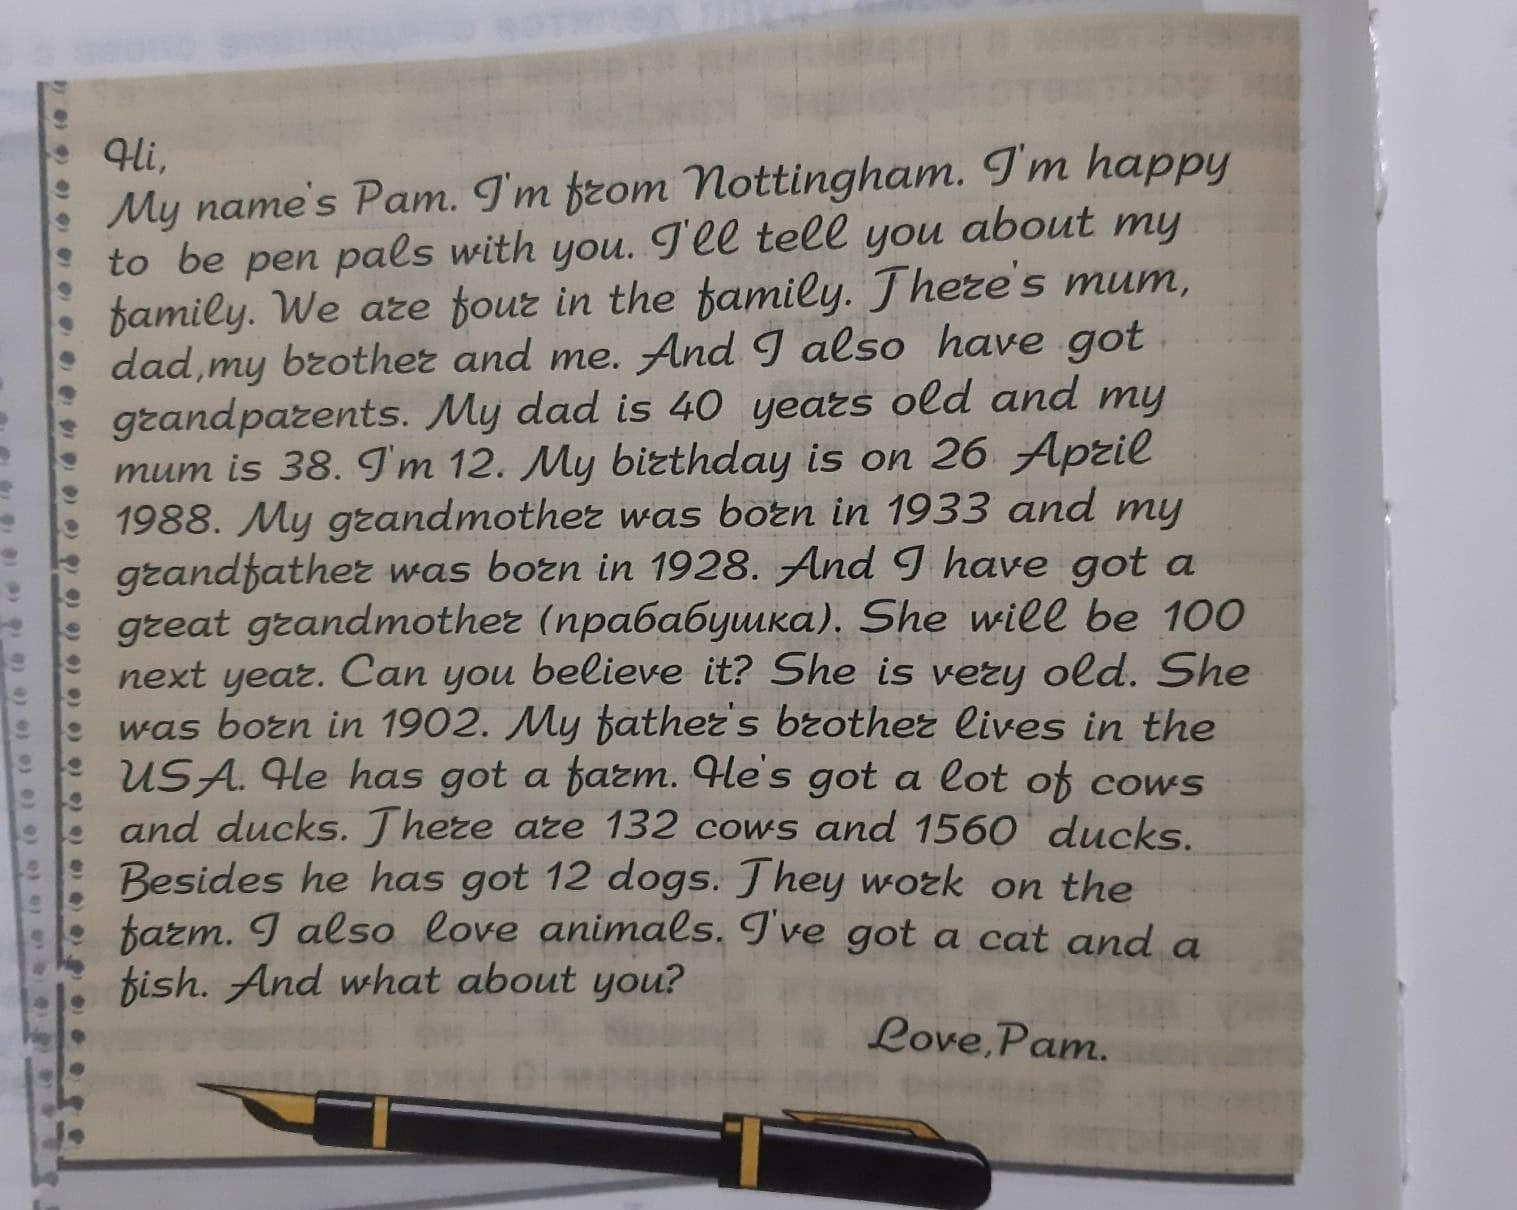 Hi,
My name's Pam. I'm from Nottingham. I'm happy
to be pen pals with you. I'll tell you about my
family. We are four in the family. There's mum,
dad,my brother and me. And I also have got
grandparents. My dad is 40 years old and my
mum is 38. I'm 12. My birthday is on 26 April
1988. My grandmother was born in 1933 and my
grandfather was born in 1928. And I have got a
great grandmother (прабабушка). She will be 100
next year. Can you believe it? She is very old. She
was born in 1902. My father's brother lives in the
USA. He has got a farm. He's got a lot of cows
and ducks. There are 132 cows and 1560 ducks.
Besides he has got 12 dogs. They work on the
farm. I also love animals. I've got a cat and a
fish. And what about you?
Love,Pam.